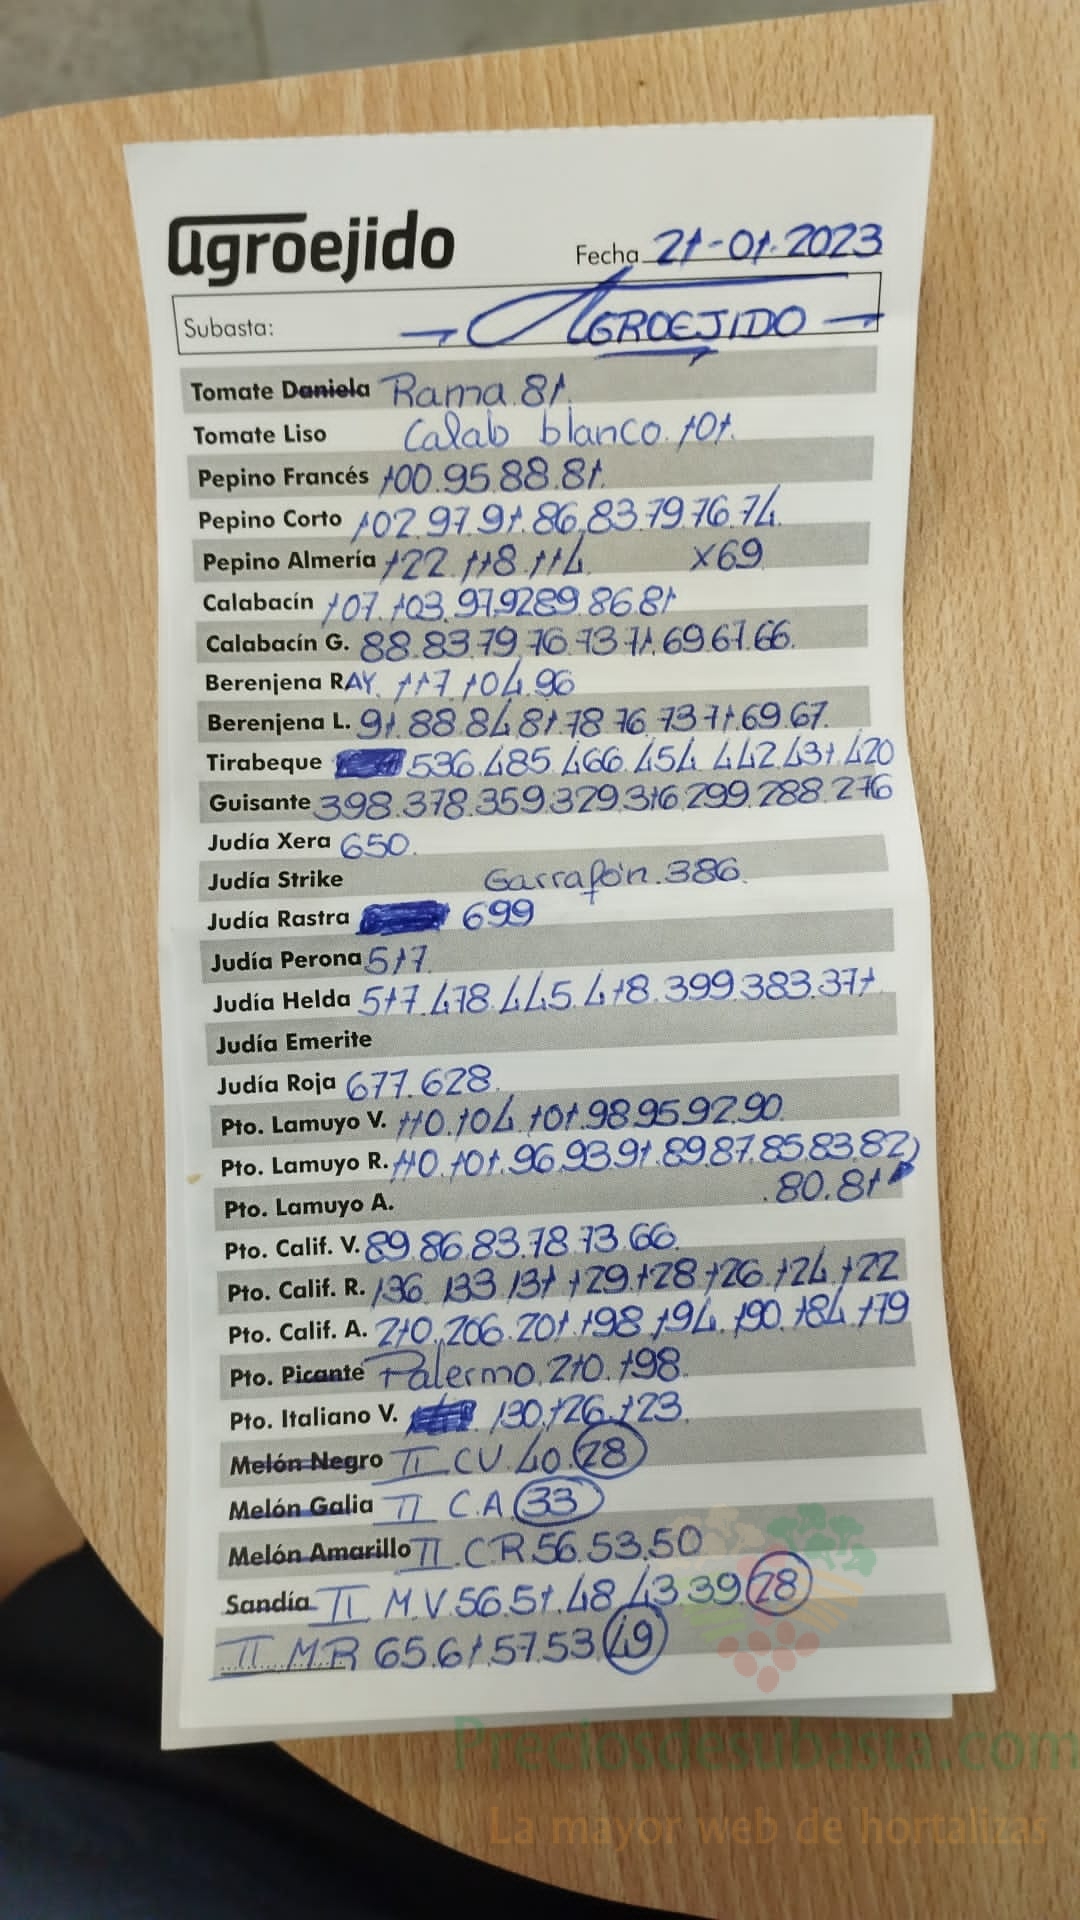 agroejido
Fecha 21-01.2023
Subasta: AGROEJIDO
Tomate Daniela Rama 81.
Tomate Liso Calab blanco. 101.
Pepino Francés 100.95.88.81.
Pepino Corto 102.97.91.86.83.79.76.74.
Pepino Almería 122.118.114. x69
Calabacín 107.103.97.92.89.86.81
Calabacín G. 88.83.79.76.73.71.69.67.66.
Berenjena RAY. 117.104.96
Berenjena L. 91.88.84.81.78.76.73.71.69.67.
Tirabeque 536.485.466.454.442.431.420
Guisante 398.378.359.329.316.299.288.276
Judía Xera 650.
Judía Strike Garrafón.386.
Judía Rastra 699
Judía Perona 517.
Judía Helda 517.478.445.418.399.383.371.
Judía Emerite
Judía Roja 677.628.
Pto. Lamuyo V. 110.104.101.98.95.92.90.
Pto. Lamuyo R. 110.101.96.93.91.89.87.85.83.82)
Pto. Lamuyo A. .80.81
Pto. Calif. V. 89.86.83.78.73.66.
Pto. Calif. R. 136.133.131.129.128.126.124.122
Pto. Calif. A. 210.206.201.198.194.190.184.179
Pto. Picante Palermo.210.198.
Pto. Italiano V. 130.126.123.
Melón Negro II CV.40.28
Melón Galia II C.A 33
Melón Amarillo II C.R.56.53.50
Sandía II M.V.56.51.48.43.39.28
II MR 65.61.57.53.49
Preciosdesubasta.com
La mayor web de hortalizas